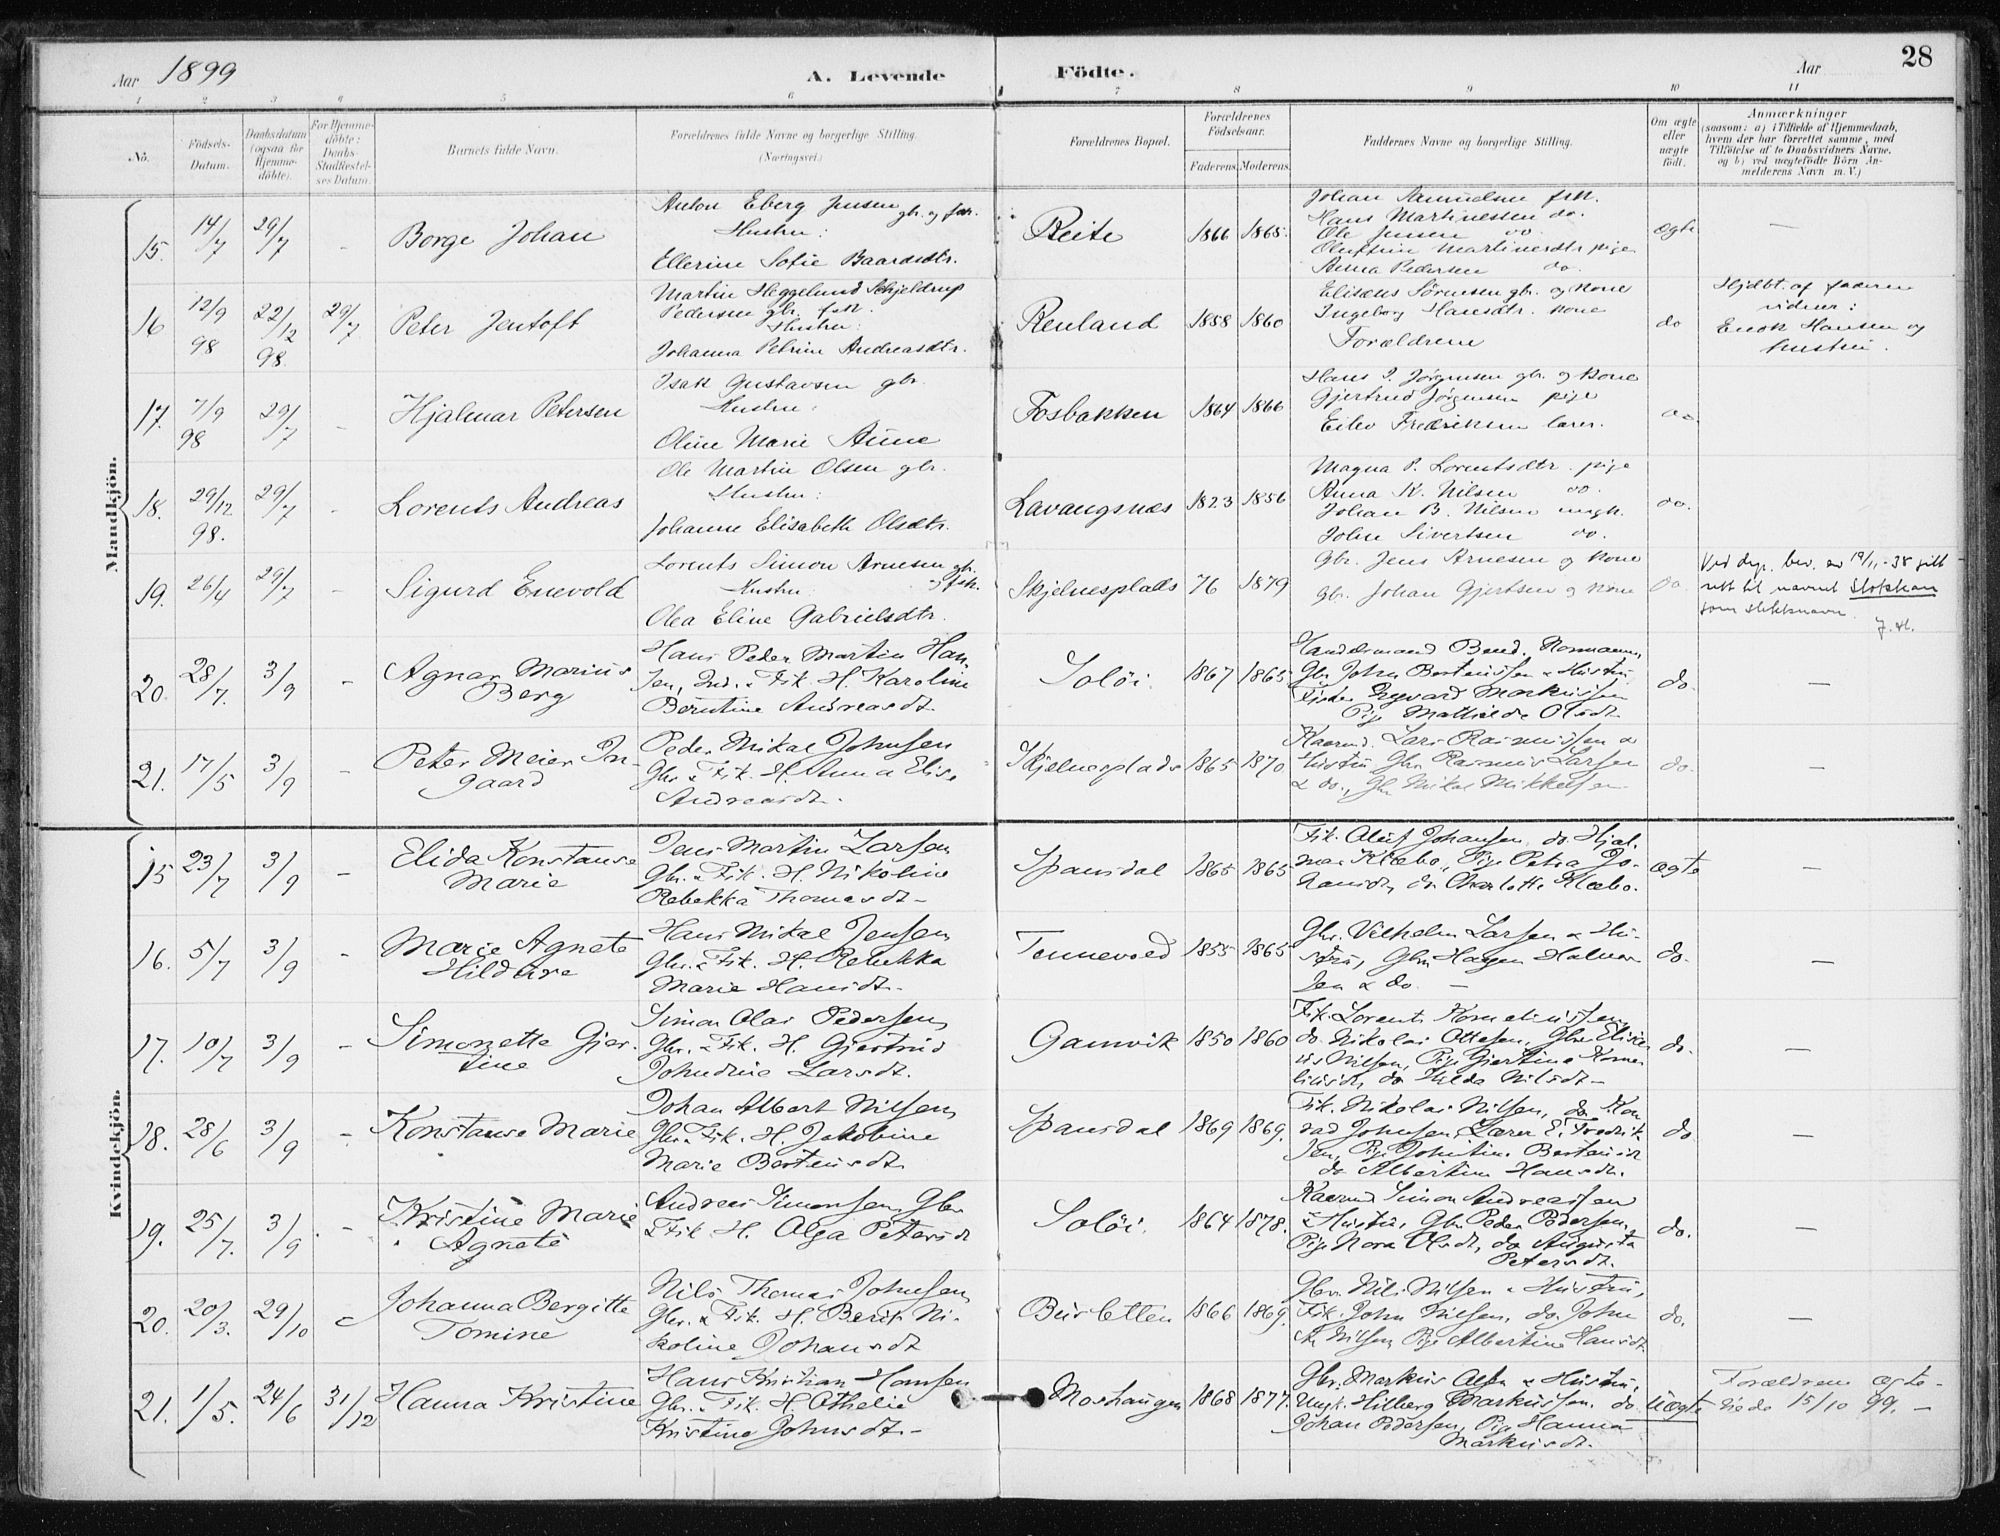 Aar 1899 A. Levende Födte. Aar 28
1 2 3 4 5 6 7 8 9 10 11
No. Födsels-Datum. Daabsdatum (ogsaa for Hjemmedöbte). For Hjemmedöbte: Daabs Stadfæstelses Datum. Barnets fulde Navn. Forældrenes fulde Navne og borgerlige Stilling. (Næringsvei.) Forældrenes Bopæl. Forældrenes Födselsaar. Faderens. Moderens. Faddernes Navne og borgerlige Stilling. Om ægte eller uægte födt. Anmærkninger (saasom: a) i Tilfælde af Hjemmedaab, hvem der har forrettet samme, med Tilföielse af to Daabsvidners Navne, og b) ved uægtefödte Börn Anmelderens Navn m. V.)
Mandkjön.
15. 14/7 29/7 - Borge Johan
Anton Eberg Jensen gbr. og fsk.
Hustru:
Ellerine Sofie Baardsdtr.
Reite 1866 1865.
Johan Samuelsen fsk.
Hans Martinessen do.
Ole Jensen do
Oluffine Martinesdtr pige
Anna Pedersen do.
ægte -
16 12/9 98 22/12 98. 29/7 Peter Jentoft
Martin Heggelund Schjeldrup
Pedersen gbr. fsk.
Hustru:
Johanna Petrine Andreasdtr.
Renland 1858 1860
Elisæus Sörensen gbr. og kone
Ingeborg Hansdtr. kone
Forældrene
do
Hjdbt. af faderen
vidner:
Enok Hansen og
hustru.
17. 7/9 98 29/7 - Hjalmar Petersen
Isak Gustavsen gbr.
Hustru:
Oline Marie Aune
Fosbakken 1864 1866
Hans P. Jörgensen gbr. og kone
Gjertrud Jörgensen pige
Eilev Fredriksen lærer.
do.
18. 29/12 98. 29/7 - Lorents Andreas
Ole Martin Olsen gbr.
Hustru:
Johanne Elisabeth Olsdtr.
Lavangsnæs 1823 1856
Magna P. Lorentsdtr. pige
Anna K. Nilsen do.
Johan B. Nilsen ungk.
John Sivertsen do.
do.
19. 26/4 29/7 - Sigurd Enevold
Lorents Simon Arnesen gbr.
Hustru: og fsk.
Olea Eline Gabrielsdtr.
Skjelnesplads 76 1879
Gbr. Jens Arnesen og kone
Gbr. Johan Gjertsen og kone
do
Ved dep. bev. av 19/11-38 gitt
rett til navnet Slokkan
som slektsnavn.
20. 28/7. 3/9 - Agnar Marius
Berg
Hans Peder Martin Han-
sen, Ind. & Fsk. H. Karoline
Berntine Andreasdt.
Solöi. 1867 1865
Handelsmand Bernd. Normann,
Gbr John Berteussen & Hustru
Fisker Edvard Markussen
Pige Mathilde Olsdt.
do. -
21. 17/5 3/9 - Peter Meier In-
gaard
Peder Mikal Johnsen
Gbr & Fsk. H. Anna Elise
Andreasdt.
Skjelnesplads 1865 1870
Kaarmd. Lars Rasmussen &
Hustru Gbr Rasmus Larsen
& do., Gbr Mikal Mikkelsen
do. -
Kvindekjön.
15 23/7 3/9 - Elida Konstanse
Marie
Jens Martin Larsen
Gbr. & Fsk. H. Nikoline
Rebekka Thomasdt.-
Spansdal 1865 1865
Fsk. Oluf Johansen, do. Hjal-
mar Klæbo, Pige Petra Jo-
hansdt, do Charlotte Klæbo.
ægte -
16. 5/7 3/9 - Marie Agnete
Hildure
Hans Mikal Jensen
Gbr. & Fsk. H. Rebekka
Marie Hansdt.-
Tennevold 1855 1865
Gbr. Vilhelm Larsen & Hu-
stru, Gbr Hagen Halvor-
sen & do. -
do. -
17. 10/7 3/9 - Simonette Gjer-
tine
Simon Olai Pedersen,
Gbr. & Fsk. H. Gjertrud
Johndine Larsdt.
Gamvik 1850 1860
Fsk. Lorents Korneliussen,
do. Nikolai Ottesen, Gbr Elise-
us Nilsen, Pige Gjertine Korne-
liusdt, do Hilda Nilsdt-
do. -
18. 28/6 3/9 - Konstanse Marie
Johan Albert Nilsen,
Gbr. & Fsk. H. Jakobine
Marie Berteusdt.
Spansdal 1869 1869.
Fsk. Nikolai Nilsen, do. Kon-
rad Johnsen, Lærer E. Fredrik-
sen, Pige Johntine Berteusdt
do Albertine Hansdt.
do -
19. 25/7. 3/9 - Kristine Marie
Agnete
Andreas Simonsen, Gbr
& Fsk H. Olga Petersdt
Solöi. 1864 1878.
Kaarmd Simon Andreassen
& Hustru, Gbr Peder Pedersen,
Pige Nora Olsdt, do Augusta
Petersdt.
do. -
20. 20/3. 29/10 Johanna Bergitte
Tomine
Nils Thomas Johnsen
Gbr. & Fsk. H. Berit Ni-
koline Johansdt
1866 1869.
Gbr. Nils Nilsen & Hustru,
Fsk. John Nilsen, do. John
A. Nilsen, Pige Albertine Hansdt.
do. -
21. 1/5. 24/6 31/12 Hanna Kristine
Hans Kristian Hansen
Gbr. & Fsk. H. Othelie
Kristine Johnsdt.-
Moshaugen 1868 1877.
Gbr. Markus Olsen & Hustru,
Ungk. Hilberg Markussen, do.
Johan Pedersen, Pige Hanna
Markusdt.
Uægte
Forældrene ægte-
viede 15/10 99. -